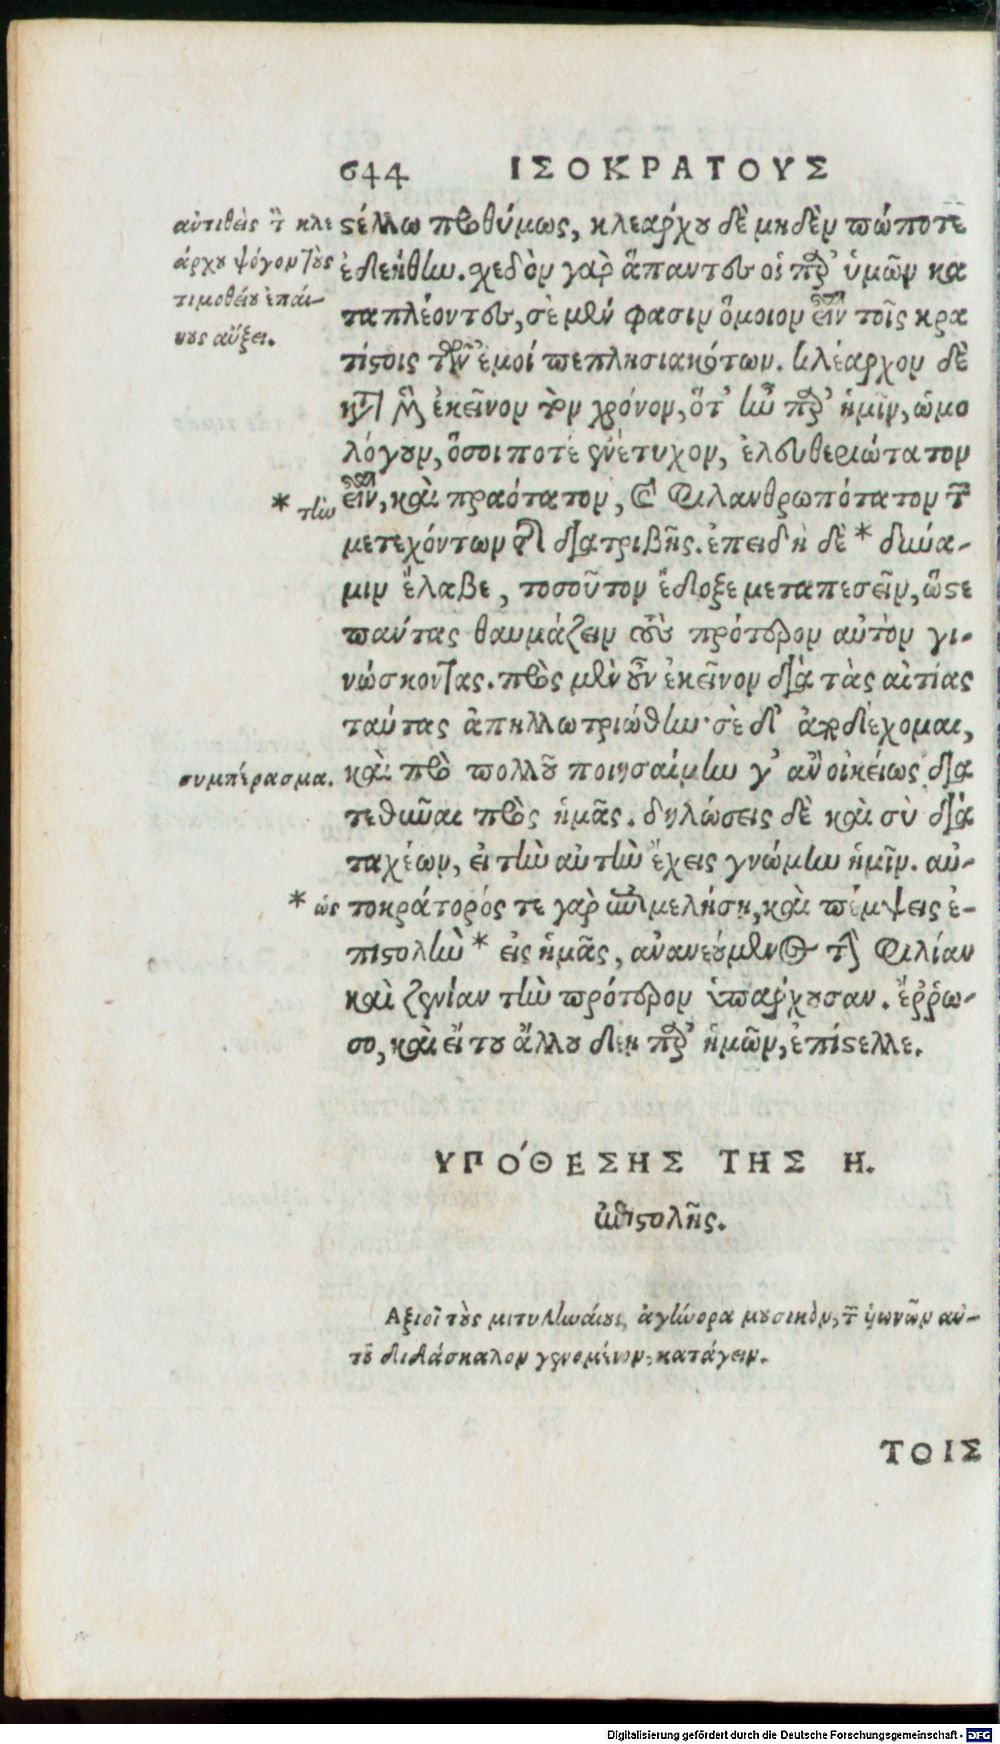 644 ΙΣΟΚΡΑΤΟΥΣ
ἀντιθεὶς τ κλε
άρχου ψόγον τοὺς
τιμοθέου ἐπαί-
νους αὔξει.
στέλλω προθύμως, κλεάρχου δὲ μηδὲν πώποτε
ἐδεήθην. σχεδὸν γὰρ ἅπαντες οἱ παρ' ὑμῶν κα
ταπλέοντες, σὲ μὲν φασιν ὅμοιον εἶναι τοῖς κρα
τίστοις τῶν ἐμοί πεπλησιακότων. κλέαρχον δὲ
κατὰ μὲν ἐκεῖνον τὸν χρόνον, ὅτ' ἦν παρ' ἡμῖν, ὡμο
λόγουν, ὅσοι ποτὲ ἐνέτυχον, ἐλευθεριώτατον
* τὴν
εἶναι, καὶ πραότατον, καὶ φιλανθρωπότατον τῶν
μετεχόντων τῆς διατριβῆς. ἐπειδὴ δὲ * δύνα-
μιν ἔλαβε, τοσοῦτον ἔδοξε μεταπεσεῖν, ὥστε
πάντας θαυμάζειν τοὺς πρότερον αὐτὸν γι-
νώσκοντας. πρὸς μὲν οὖν ἐκεῖνον διὰ τὰς αἰτίας
ταύτας ἀπηλλωτριώθην· σὲ δ' ἀποδέχομαι,
συμπέρασμα.
καὶ πρὸ πολλοῦ ποιησαίμην γ' ἂν οἰκείως δια
τεθῆναι πρὸς ἡμᾶς. δηλώσεις δὲ καὶ σὺ διὰ
ταχέων, εἰ τὴν αὐτὴν ἔχεις γνώμην ἡμῖν. αὐ-
* ὡς
τοκράτορός τε γὰρ ἐπιμελήσῃ, καὶ πέμψεις ἐ-
πιστολὴν * εἰς ἡμᾶς, ἀνανεούμενος τὴν φιλίαν
καὶ ξενίαν τὴν πρότερον ὑπάρχουσαν. ἔρρω-
σο, καὶ εἴ του ἄλλου δέῃ παρ' ἡμῶν, ἐπίστελλε.
ΥΠΌΘΕΣΗΣ ΤΗΣ Η.
ἐπιστολῆς.
Αξιοῖ τοὺς μιτυληναίους, ἀγήνορα μουσικὸν, τῶν ὑωνῶν αὐ-
τοῦ διδάσκαλον γενομένον, κατάγειν.
ΤΟΙΣ
Digitalisierung gefördert durch die Deutsche Forschungsgemeinschaft - DFG